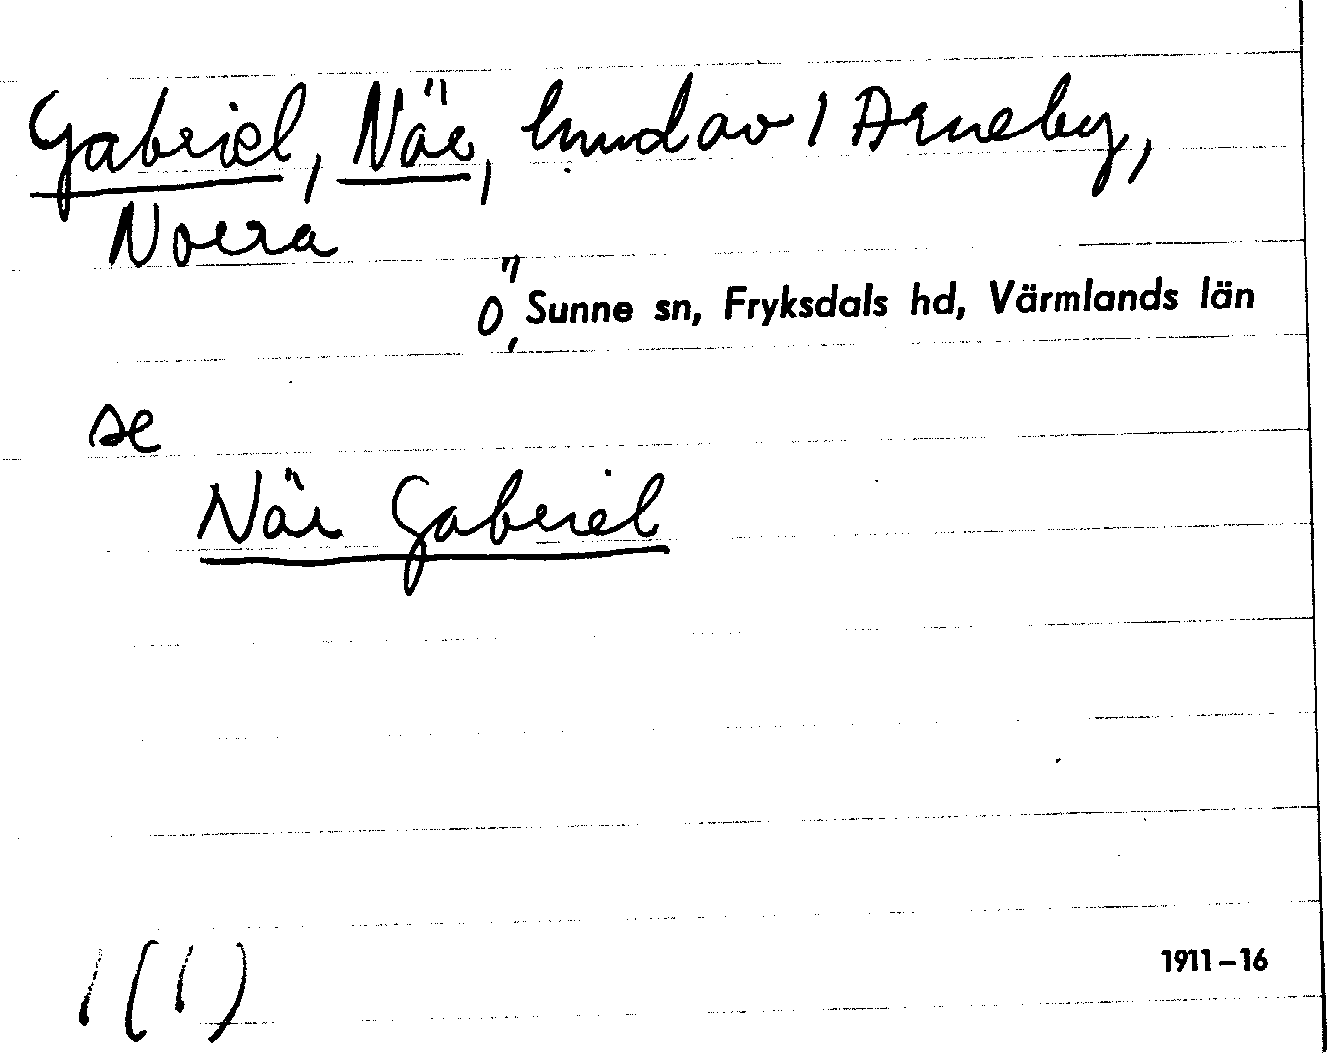 Gabriel, När, hmd av 1 Arneby,
Norra
Ö, Sunne sn, Fryksdals hd, Värmlands län
se
När Gabriel
1(1)
1911–16